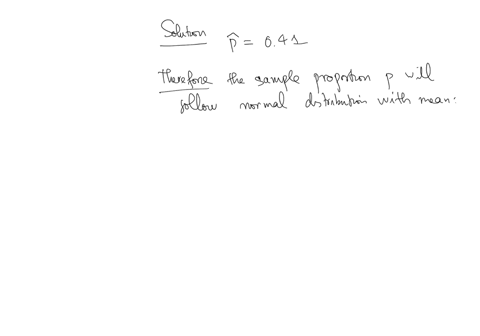 Solution p̂ = 0.41
Therefore the sample proportion p will
follow normal distribution with mean: